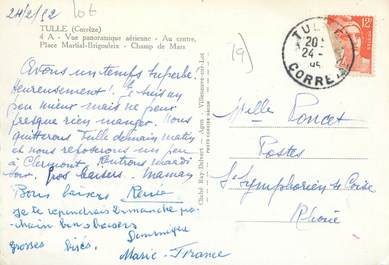 24/2/52
lot
TULLE (Corrèze)
4 A - Vue panoramique aérienne - Au centre,
Place Martial-Brigouleix - Champ de Mars
19
TULLE
24 -
CORREZE
12F
Avons un temps superbe
heureusement! Je suis un
peu mieux mais ne peux
presque rien manger. Nous
quitterons Tulle demain matin
et nous reposerons un peu
à Clermont. Rentrons mardi
soir. Gros baisers. Maman
Bons baisers Renée
je te reprendrai Dimanche pro-
chain bons baisers
Dominique
grosses bises.
Marie-France
Cliché Ray-Delvert - Agen - Villeneuve-sur-Lot
Melle Poncet
Postes
St Symphorien s/ Coise
Rhône